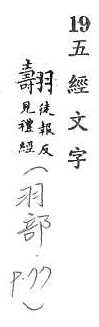 19五經文字
翿徒報反見禮經(羽部·p.77)